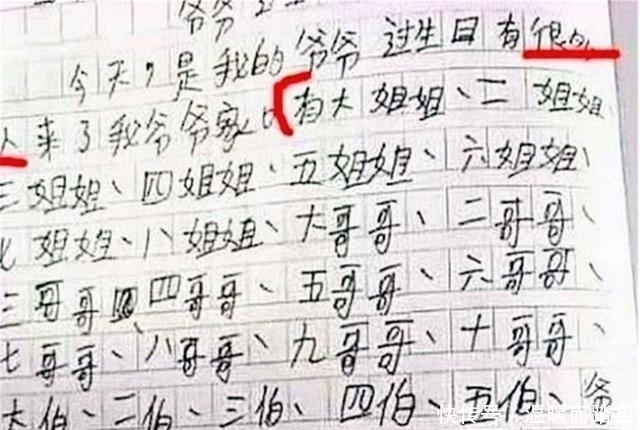 爷爷
今天，是我的爷爷过生日有很多
人来了我爷爷家，有大姐姐、二姐姐
三姐姐、四姐姐、五姐姐、六姐姐、
七姐姐、八姐姐、大哥哥、二哥哥、
三哥哥四哥哥、五哥哥、六哥哥、
七哥哥、八哥哥、九哥哥、十哥哥、
大伯、二伯、三伯、四伯、五伯、
快传号